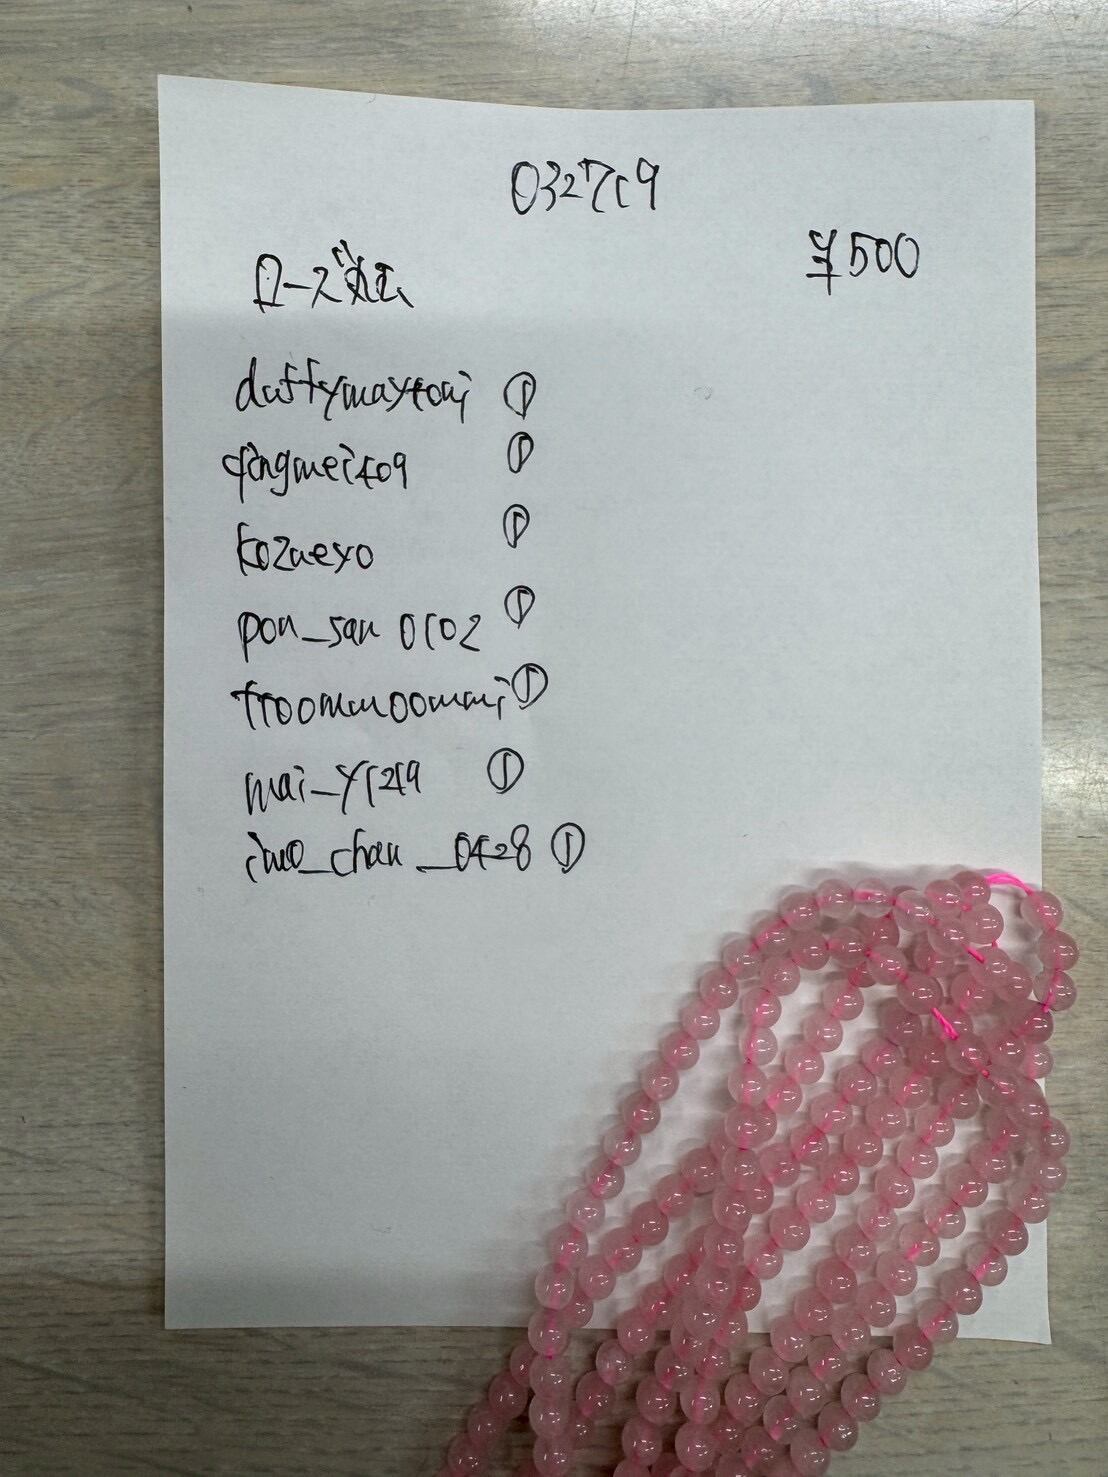 032719
¥500
ローズ丸玉
duffymaytomi ①
qingmei409 ①
kozueyo ①
pon_san 0102 ①
ttoommoommi ①
mai_y1219 ①
imo_chan_0428 ①